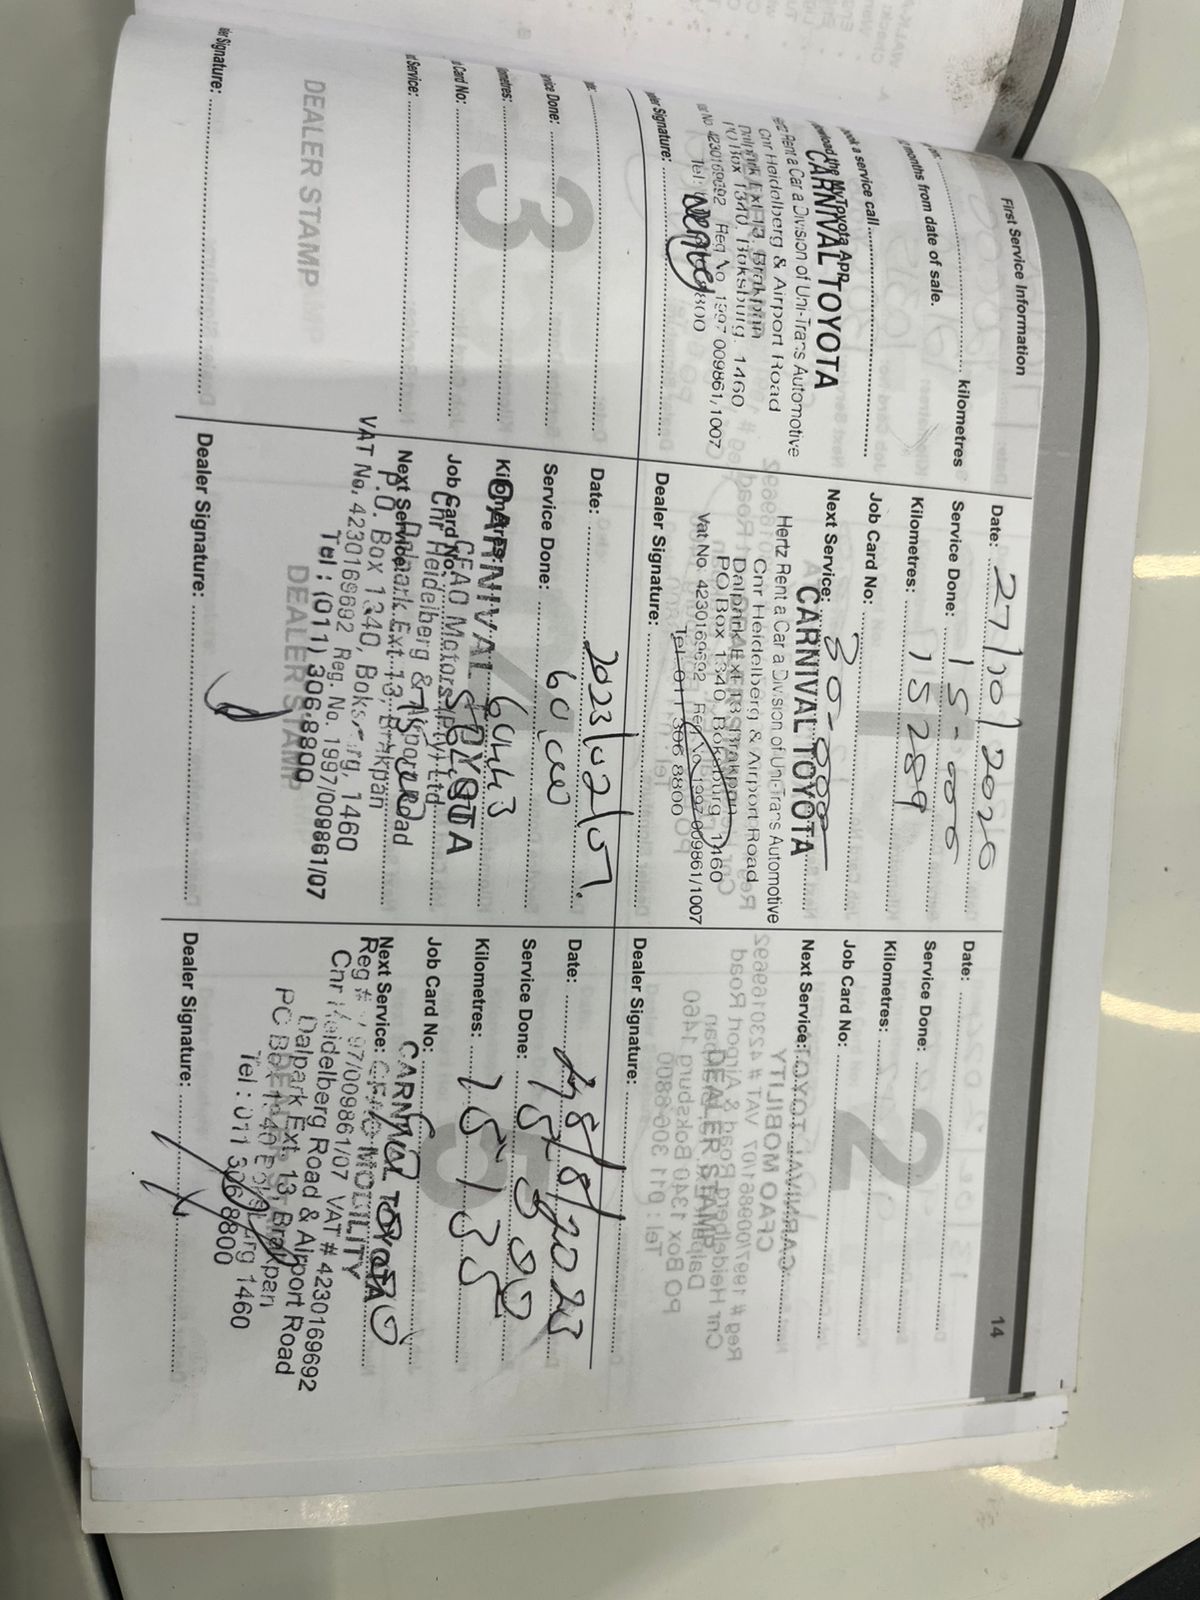 First Service Information
14
kilometres
months from date of sale.
ook a service call
wnload the MyToyota App
CARNIVAL TOYOTA
Rent a Car a Division of Uni-Trans Automotive
Cnr Heidelberg & Airport Road
Dalpark Ext 13, Brakpan
PO Box 1340, Boksburg, 1460
No 4230169692 Reg No 1997 009861/1007
Signature:
Date: 27/10/2020
Service Done: 15-000
Kilometres: 15289
Job Card No:
Next Service: 30-000
CARNIVAL TOYOTA
Hertz Rent a Car a Division of Uni-Trans Automotive
Cnr Heidelberg & Airport Road
Dalpark Ext 13 Brakpan
PO Box 1340, Boksburg, 1460
Vat No. 4230169692 Reg No 1997 009861/1007
Tel: 011 306 8800
Dealer Signature:
Date:
Service Done:
Kilometres:
Job Card No:
Next Service:
2
DEALER STAMP
Dealer Signature:
vice Done:
ometres:
Card No:
Service:
3
DEALER STAMP
er Signature:
Date: 2023/02/07.
Service Done: 60,000
Kilometres: 60443
Job Card No:
Next Service: 75000
CARNIVAL TOYOTA
CFAO Motors (Pty) Ltd
Cnr Heidelberg & Airport Road
Dalpark Ext. 13, Brakpan
P.O. Box 1340, Boksburg, 1460
VAT No. 4230169692 Reg. No. 1997/009861/07
Tel : (011) 306-8800
DEALER STAMP
Dealer Signature:
Date: 28/8/2023
Service Done: 75000
Kilometres: 75135
Job Card No:
Next Service:
CARNIVAL TOYOTA
CFAO MOBILITY
Reg # 1997/009861/07 VAT # 4230169692
Cnr Heidelberg Road & Airport Road
Dalpark Ext. 13, Brakpan
PO Box 1340 Boksburg 1460
Tel : 011 306 8800
Dealer Signature: